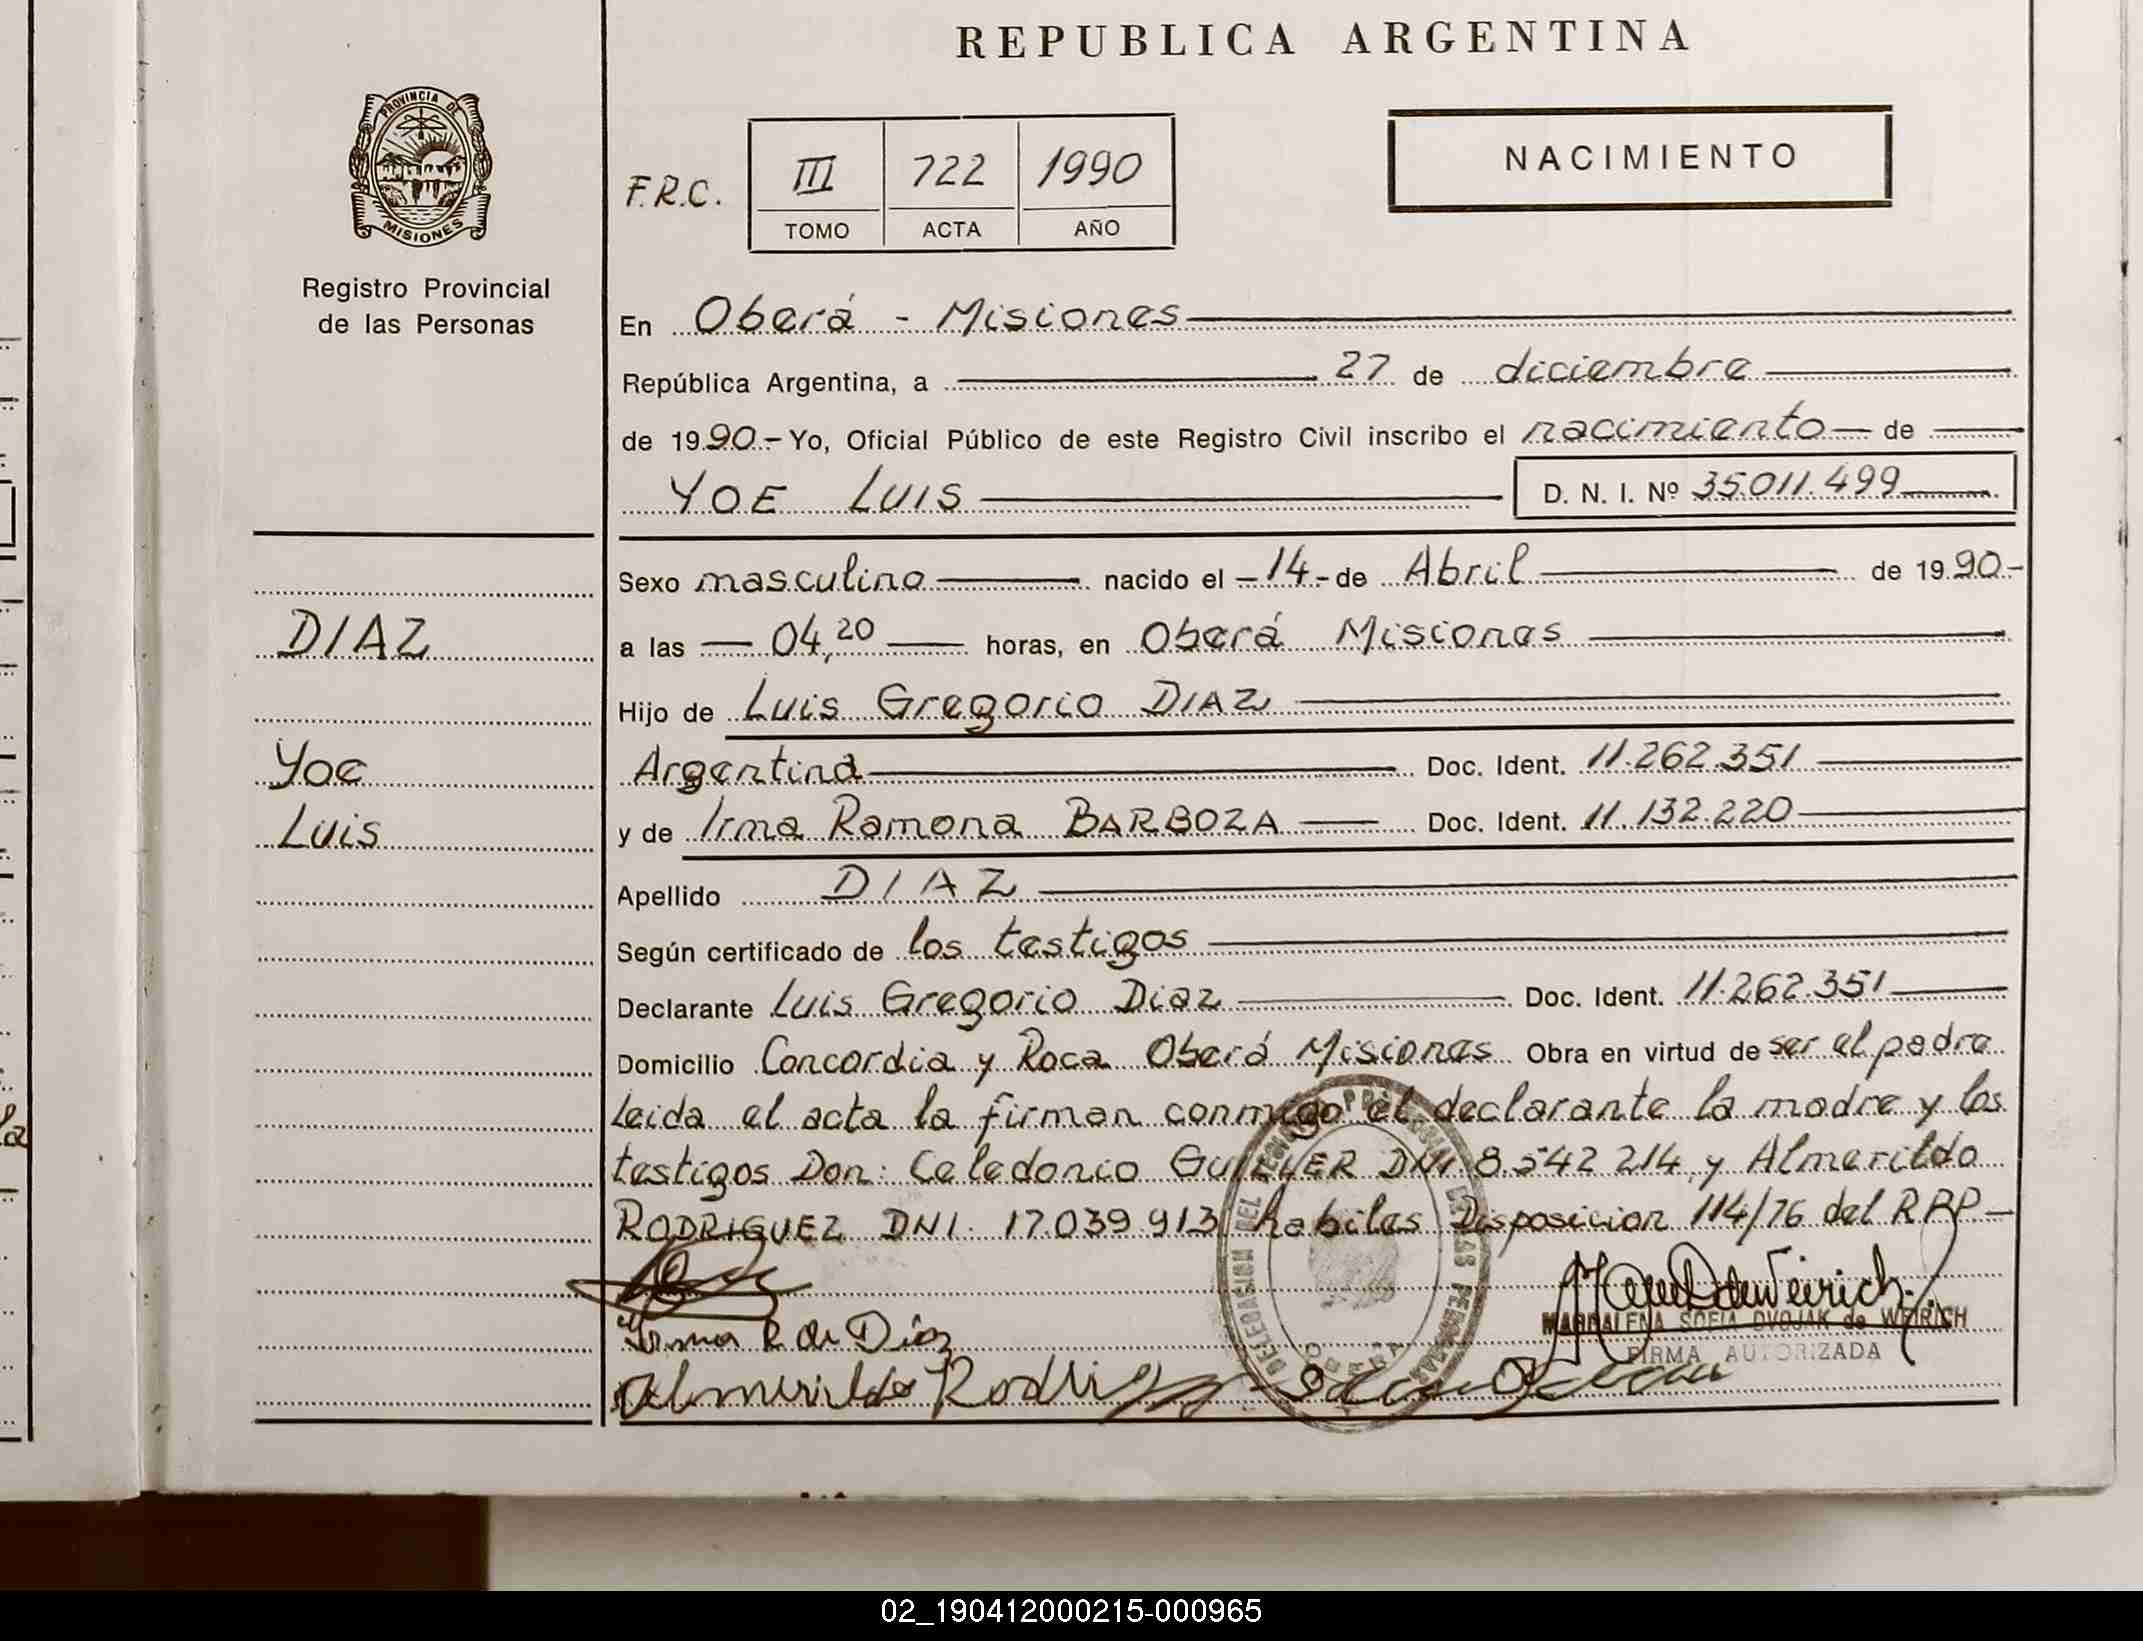 REPUBLICA ARGENTINA
PROVINCIA DE
MISIONES
Registro Provincial
de las Personas
F.R.C.
III 722 1990
TOMO ACTA AÑO
NACIMIENTO
En Oberá - Misiones
República Argentina, a 27 de diciembre
de 1990.- Yo, Oficial Público de este Registro Civil inscribo el nacimiento de
YOE LUIS D. N. I. Nº 35.011.499
Sexo masculino nacido el -14- de Abril de 1990-
DIAZ
a las 04,20 horas, en Oberá Misiones
Hijo de Luis Gregorio DIAZ
Yoe
Argentina Doc. Ident. 11.262.351
Luis
y de Irma Ramona BARBOZA Doc. Ident. 11.132.220
Apellido DIAZ
Según certificado de los testigos
Declarante Luis Gregorio Diaz Doc. Ident. 11.262.351
Domicilio Concordia y Roca Oberá Misiones Obra en virtud de ser el padre
Leida el acta la firman conmigo el declarante la madre y los
testigos Don: Celedonio DNI 8.542 214 y Almerildo
RODRIGUEZ DNI. 17.039 913 habiles Disposicion 114/76 del RPP-
Irma R de Díaz
MAGDALENA SOFIA DVOJAK de WEIRICH
FIRMA AUTORIZADA
Almerildo Rodri
DELEGASION DEL
DE LAS PERSONAS
OBERA
la
02_190412000215-000965